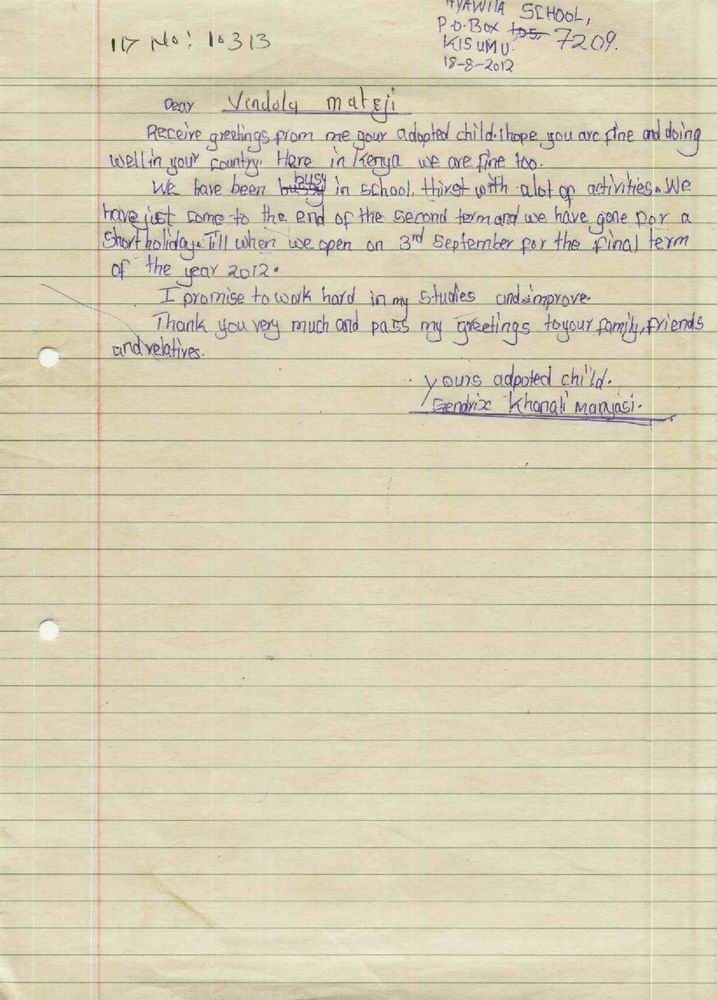 NYAWITA SCHOOL,
P.O.Box 105 7209.
ID No: 10313
KISUMU.
18-8-2012
Dear Vendola mateji
Receive greetings from me your adopted child.I hope you are fine and doing
well in your country. Here in Kenya we are fine too.
We have been bussy busy in school, thirst with alot of activities. We
have just come to the end of the second term and we have gone for a
Short holiday. Till when we open on 3rd September for the final term
of the year 2012.
I promise to work hard in my studies and improve.
Thank you very much and pass my greetings to your family, friends
and relatives.
yours adpoted child.
Khanali Manyasi.